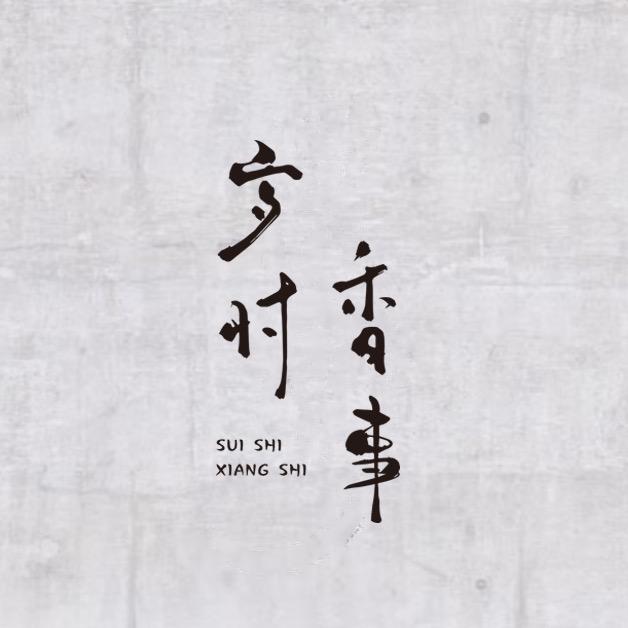 岁时
香事
SUI SHI
XIANG SHI